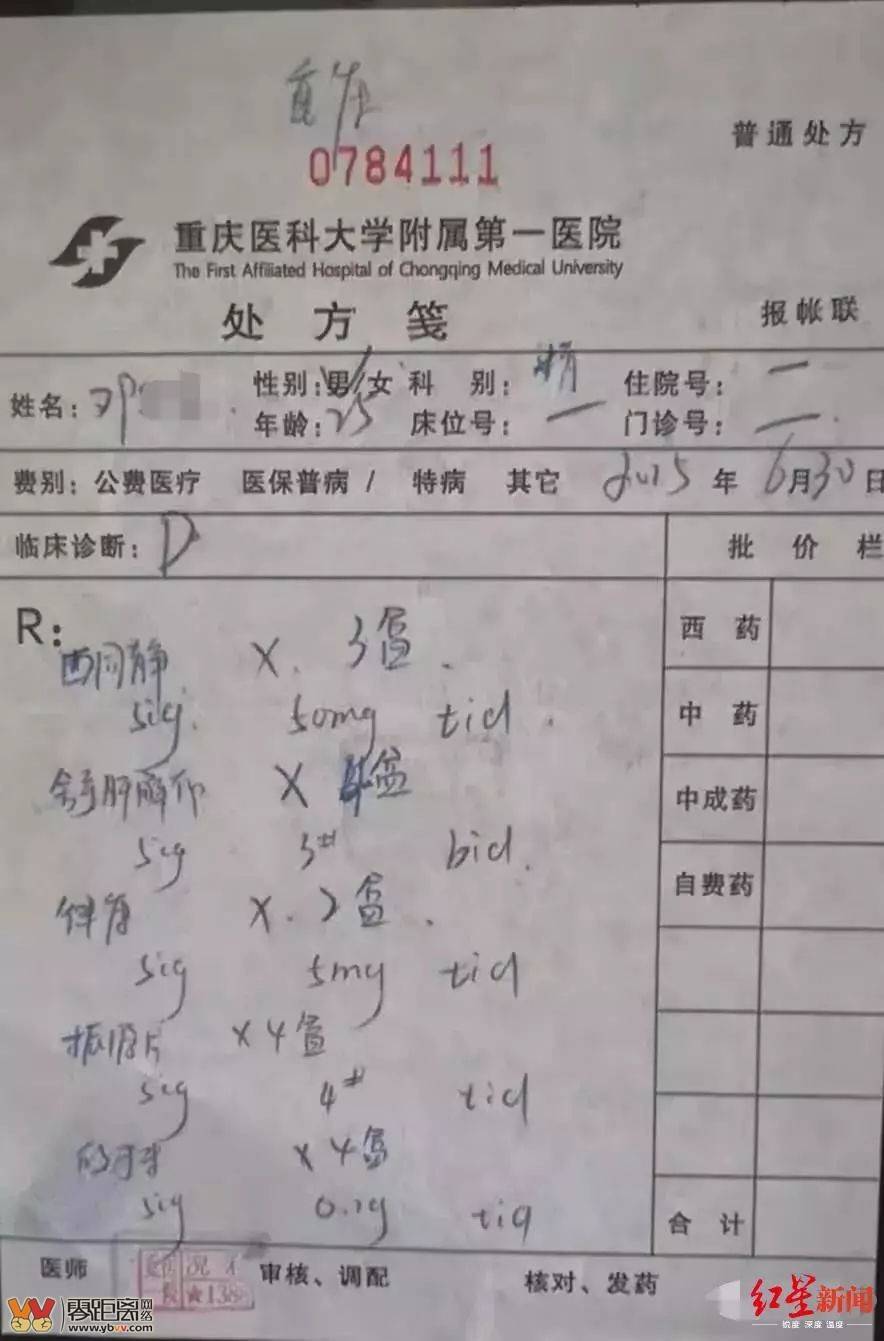 0784111
普通处方
重庆医科大学附属第一医院
The First Affiliated Hospital of Chongqing Medical University
处方笺
报帐联
姓名: 邓 性别: 男/女 科别: 精 住院号: 一
年龄: 25 床位号: 一 门诊号: 一
费别: 公费医疗 医保普病 / 特病 其它 2015 年 6月30日
临床诊断: D
批价栏
R:
西同静 × 3盒
sig. 50mg tid
舒肝解郁 × 4盒
sig 3# bid.
× 2盒
sig 5mg tid
片 ×4盒
sig 4# tid
×4盒
sig tid
西药
中药
中成药
自费药
合计
医师 审核、调配 核对、发药
★138
零距离网络
www.ybvv.com
红星新闻
锐度 深度 温度